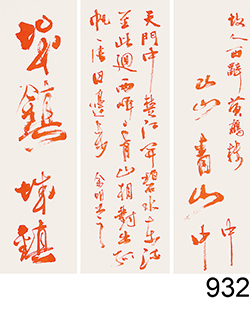 故人西辭黃鶴樓
山山青山中
中
天門中斷楚江開碧水東流
至此迴兩岸青山相對出孤
帆一片日邊來
鎮
鎮
932